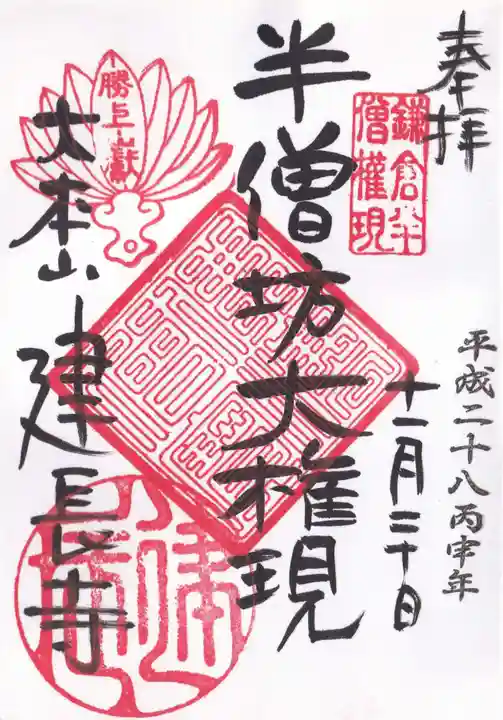 奉拝
鎌倉半
僧權現
平成二十八丙申年
十一月二十日
半僧坊大権現
勝上山献
大本山建長寺